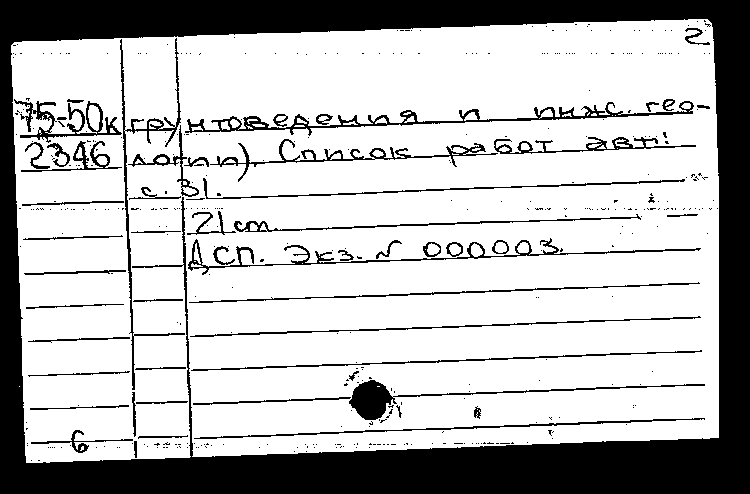 2
75-50к грунтоведения и инж. гео-
2346 логии). Список работ авт.:
с. 31.
21 cm.
ДСП. Экз. N 000003.
6